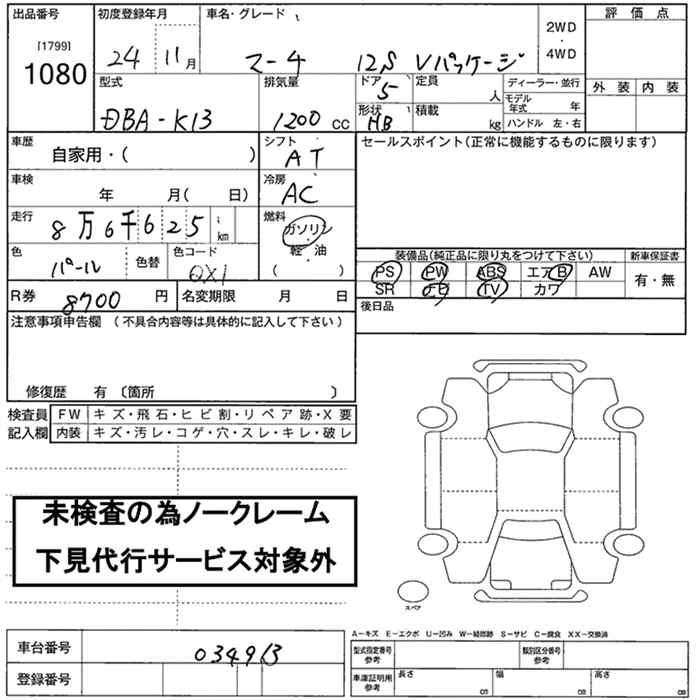 出品番号 初度登録年月 車名・グレード 評価点
[1799]
1080
24 11月 マーチ 12S Vパッケージ
2WD
・
4WD
外装 内装
型式 排気量 ドア 定員 ディーラー・並行
DBA-K13 1200 CC 5 人
モデル年式 年
形状 積載
HB kg ハンドル 左・右
車歴 シフト セールスポイント(正常に機能するものに限ります)
自家用・( ) AT
車検 冷房
年 月( 日) AC
走行 燃料
8万6千625 km ガソリン
・
軽・油
( )
色 色替 色コード
パール QX1
装備品(純正品に限り丸をつけて下さい) 新車保証書
PS PW ABS エアB AW 有・無
SR ナビ TV カワ
R券 8700 円 名変期限 月 日 後日品
注意事項申告欄 (不具合内容等は具体的に記入して下さい)
修復歴 有 〔箇所 〕
検査員 FW キズ・飛石・ヒビ割・リペア跡・X要
記入欄 内装 キズ・汚レ・コゲ・穴・スレ・キレ・破レ
未検査の為ノークレーム
下見代行サービス対象外
スペア
A－キズ E－エクボ U－凹み W－補修跡 S－サビ C－腐食 XX－交換済
車台番号 034913
型式指定番号 参考 類別区分番号 参考
登録番号
車庫証明用 参考 長さ cm 幅 cm 高さ cm